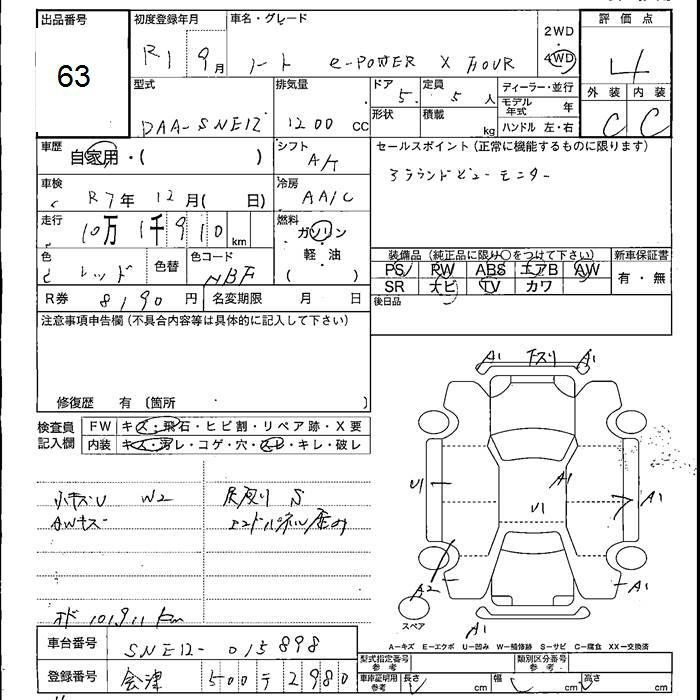 出品番号
63
初度登録年月
R1 9月
車名・グレード
ノート e-POWER X FOUR
2WD
4WD
評価点
4
外装 内装
C C
型式
DAA-SNE12
排気量
1200 cc
ドア
5
定員
5 人
形状
積載
kg
ディーラー・並行
モデル年式 年
ハンドル 左・右
車歴
自家用・( )
シフト
A/T
セールスポイント (正常に機能するものに限ります)
車検
R7年 12月( 日)
冷房
AA/C
走行
10万 1千 910 km
燃料
ガソリン
軽・油
( )
色
レッド
色替
色コード
NBF
装備品 (純正品に限り○をつけて下さい)
PS PW ABS エアB AW
SR ナビ TV カワ
新車保証書
有・無
R券 8190 円
名変期限 月 日
後日品
注意事項申告欄 (不具合内容等は具体的に記入して下さい)
修復歴 有 〔箇所 〕
検査員
記入欄
FW キズ・飛石・ヒビ割・リペア跡・X要
内装 キズ・汚レ・コゲ・穴・スレ・キレ・破レ
小キズU W2
AWキズ
S
エンドパネル歪み
101,911 km
A1 下スリ A1
U1
A1
U1
A1
A2
A1
A1
スペア
A-キズ E-エクボ U-凹み W-補修跡 S-サビ C-腐食 XX-交換済
車台番号
SNE12-015898
登録番号
会津 500 テ 2980
型式指定番号
参考
類別区分番号
参考
車庫証明用
参考
長さ cm
幅 cm
高さ cm